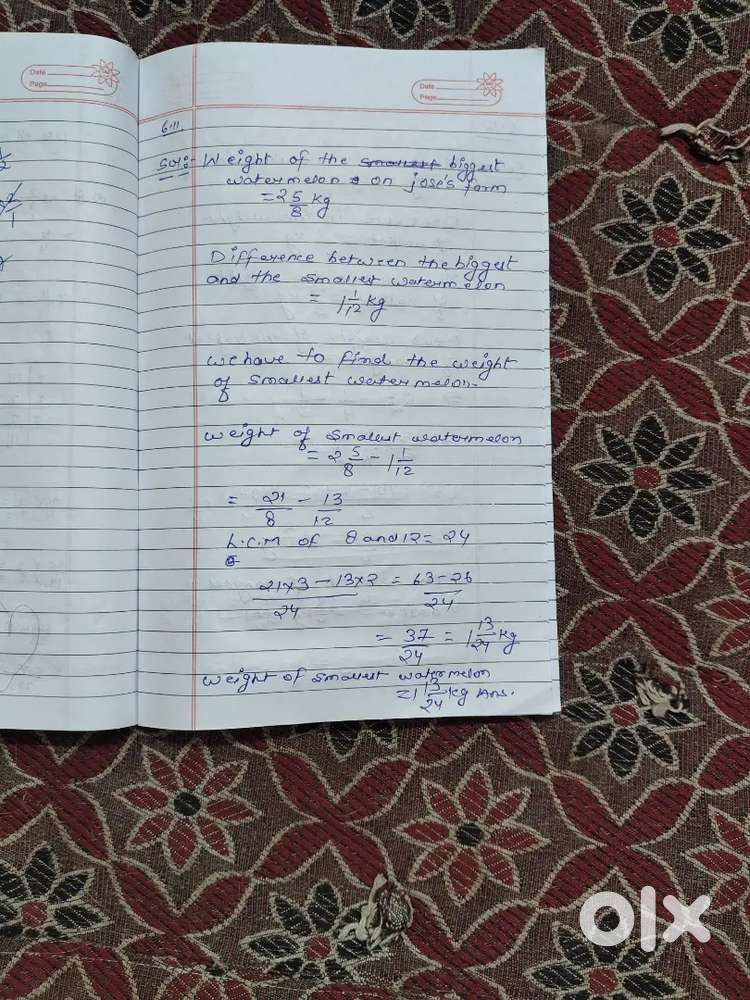 Date
Page
Date
Page
6·11.
Sol:- Weight of the smallest biggest
watermelon on jose's farm
= 2 5/8 kg
Difference between the biggest
and the smallest watermelon
= 1 1/12 kg
we have to find the weight
of smallest watermelon.
weight of smallest watermelon
= 2 5/8 - 1 1/12
= 21/8 - 13/12
L.C.M of 8 and 12 = 24
21x3 - 13x2 / 24 = 63-26 / 24
= 37/24 = 1 13/24 kg
weight of smallest watermelon
= 1 13/24 kg Ans.
olx